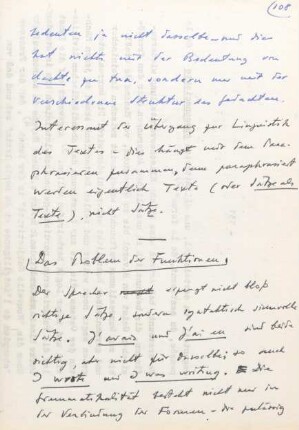 108
bedeuten ja nicht dasselbe und dies
hat nichts mit der Bedeutung von
dachte zu tun, sondern nur mit der
verschiedenen Struktur des Gedachten.
Interessant der Übergang zur Linguistik
des Textes – dies hängt mit dem Para-
phrasieren zusammen, denn paraphrasiert
werden eigentlich Texte (oder Sätze als
Texte), nicht Sätze.
Das Problem der Funktionen
Der Sprecher erzeugt nicht bloß
richtige Sätze, sondern syntaktisch sinnvolle
Sätze. J'avais und j'ai eu sind beide
richtig, aber nicht für dasselbe; so auch
I wrote und I was writing. Die
Grammatikalität besteht nicht nur in
der Verbindung der Formen – der zulässig